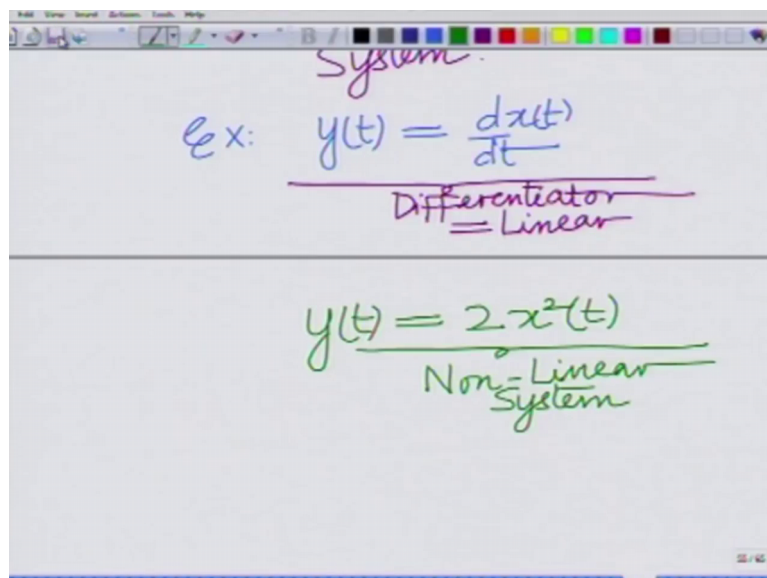 Edit View Insert Actions Tools Help
System.
Ex: y(t) = dx(t)/dt
Differentiator
= Linear
y(t) = 2x²(t)
Non-Linear
System